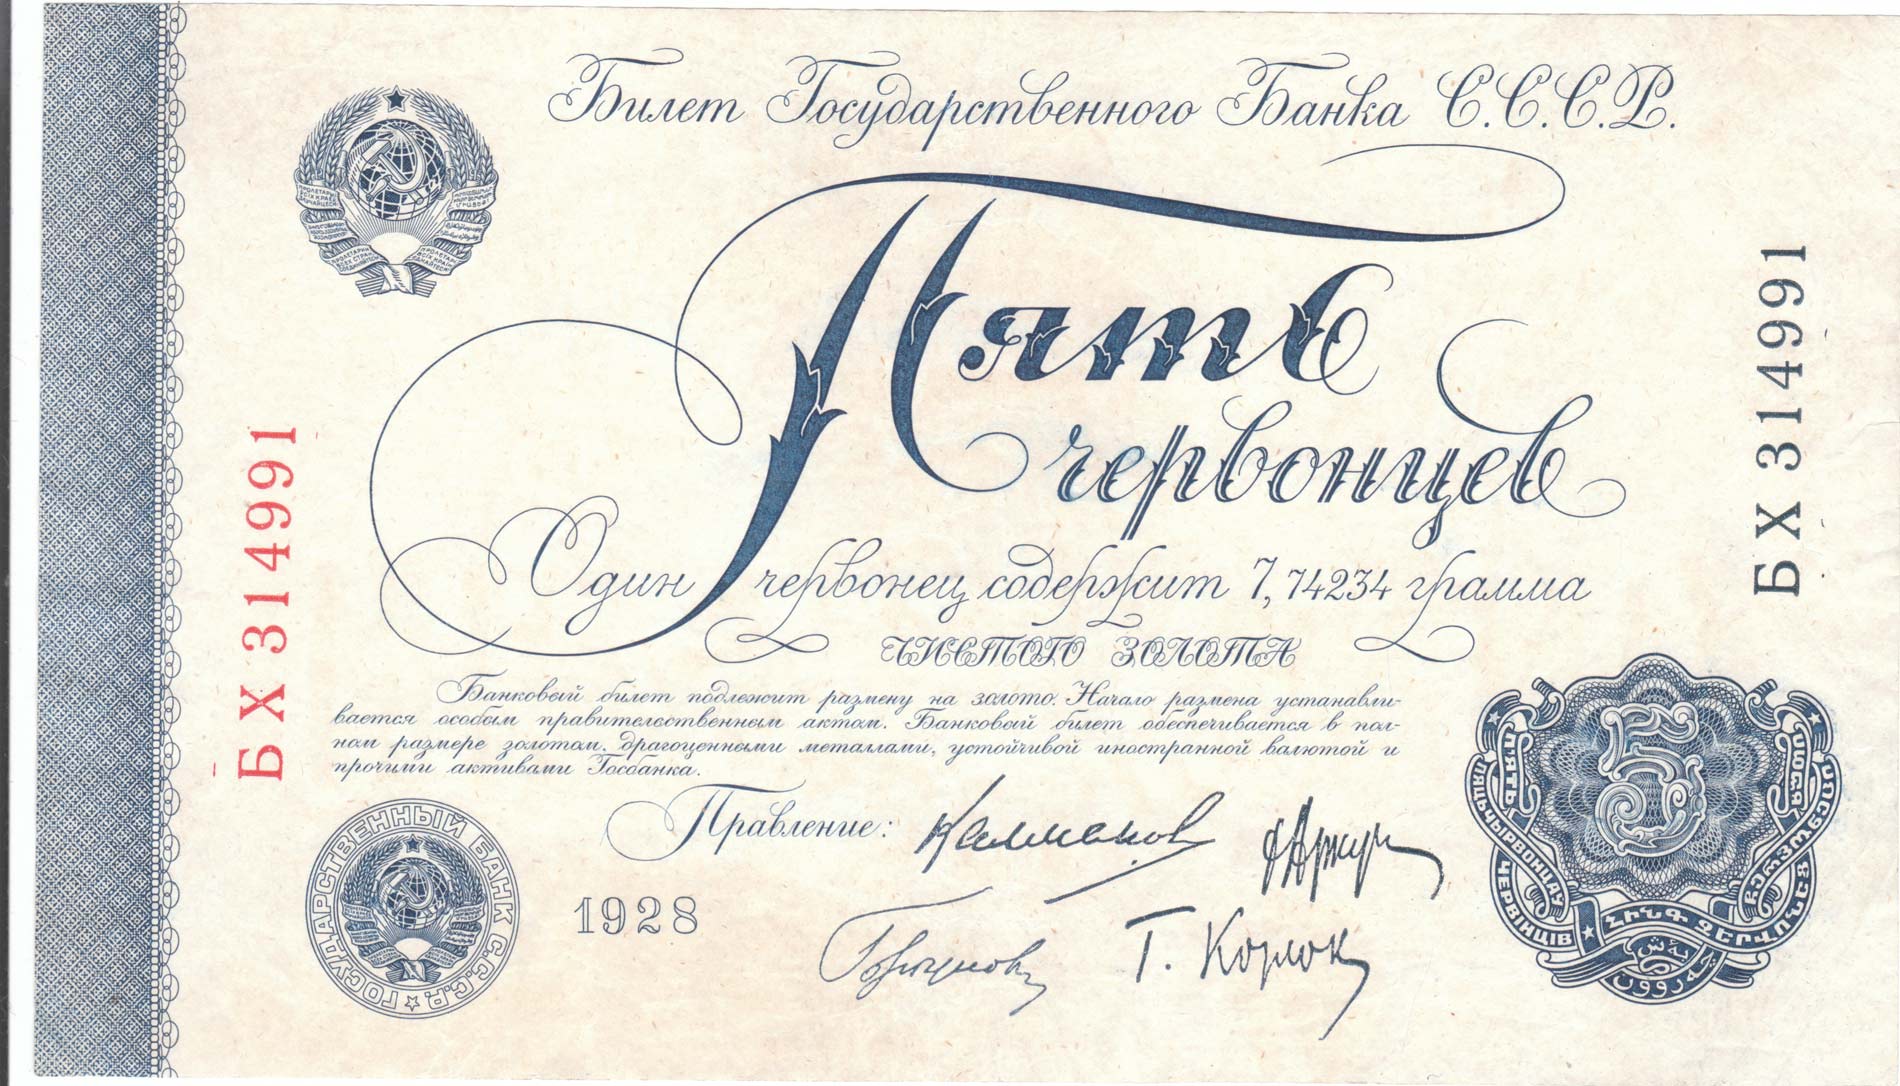 Билет Государственного Банка С.С.С.Р.
Пять
червонцев
Один червонец содержит 7,74234 грамма
ЧИСТОГО ЗОЛОТА
Банковый билет подлежит размену на золото. Начало размена устанавли-
вается особым правительственным актом. Банковый билет обеспечивается в пол-
ном размере золотом, драгоценными металлами, устойчивой иностранной валютой и
прочими активами Госбанка.
Правление:
Калманов
Т. Корлок
1928
БХ 314991
БХ 314991
ГОСУДАРСТВЕННЫЙ БАНК С.С.С.Р.
5
ПЯТЬ
ПЯЦЬ ЧЫРВОНЦАУ
ЧЕРВІНЦІВ
ՀԻՆԳ ՉԵՐՎՈՆԵՑ
ПРОЛЕТАРИИ
ВСЕХ СТРАН
СОЕДИНЯЙТЕСЬ